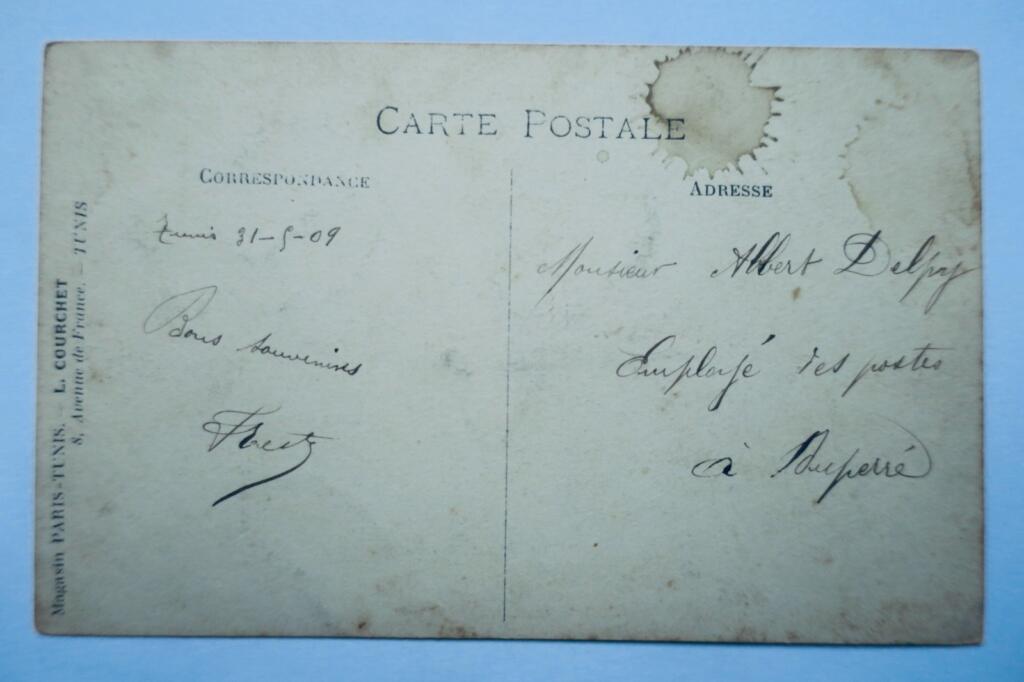 CARTE POSTALE
CORRESPONDANCE
ADRESSE
Tunis 31-5-09
Bons souvenirs
Monsieur Albert Delpy
Employé des postes
à Duperré
Magasin PARIS-TUNIS. – L. COURCHET
8, Avenue de France. – TUNIS